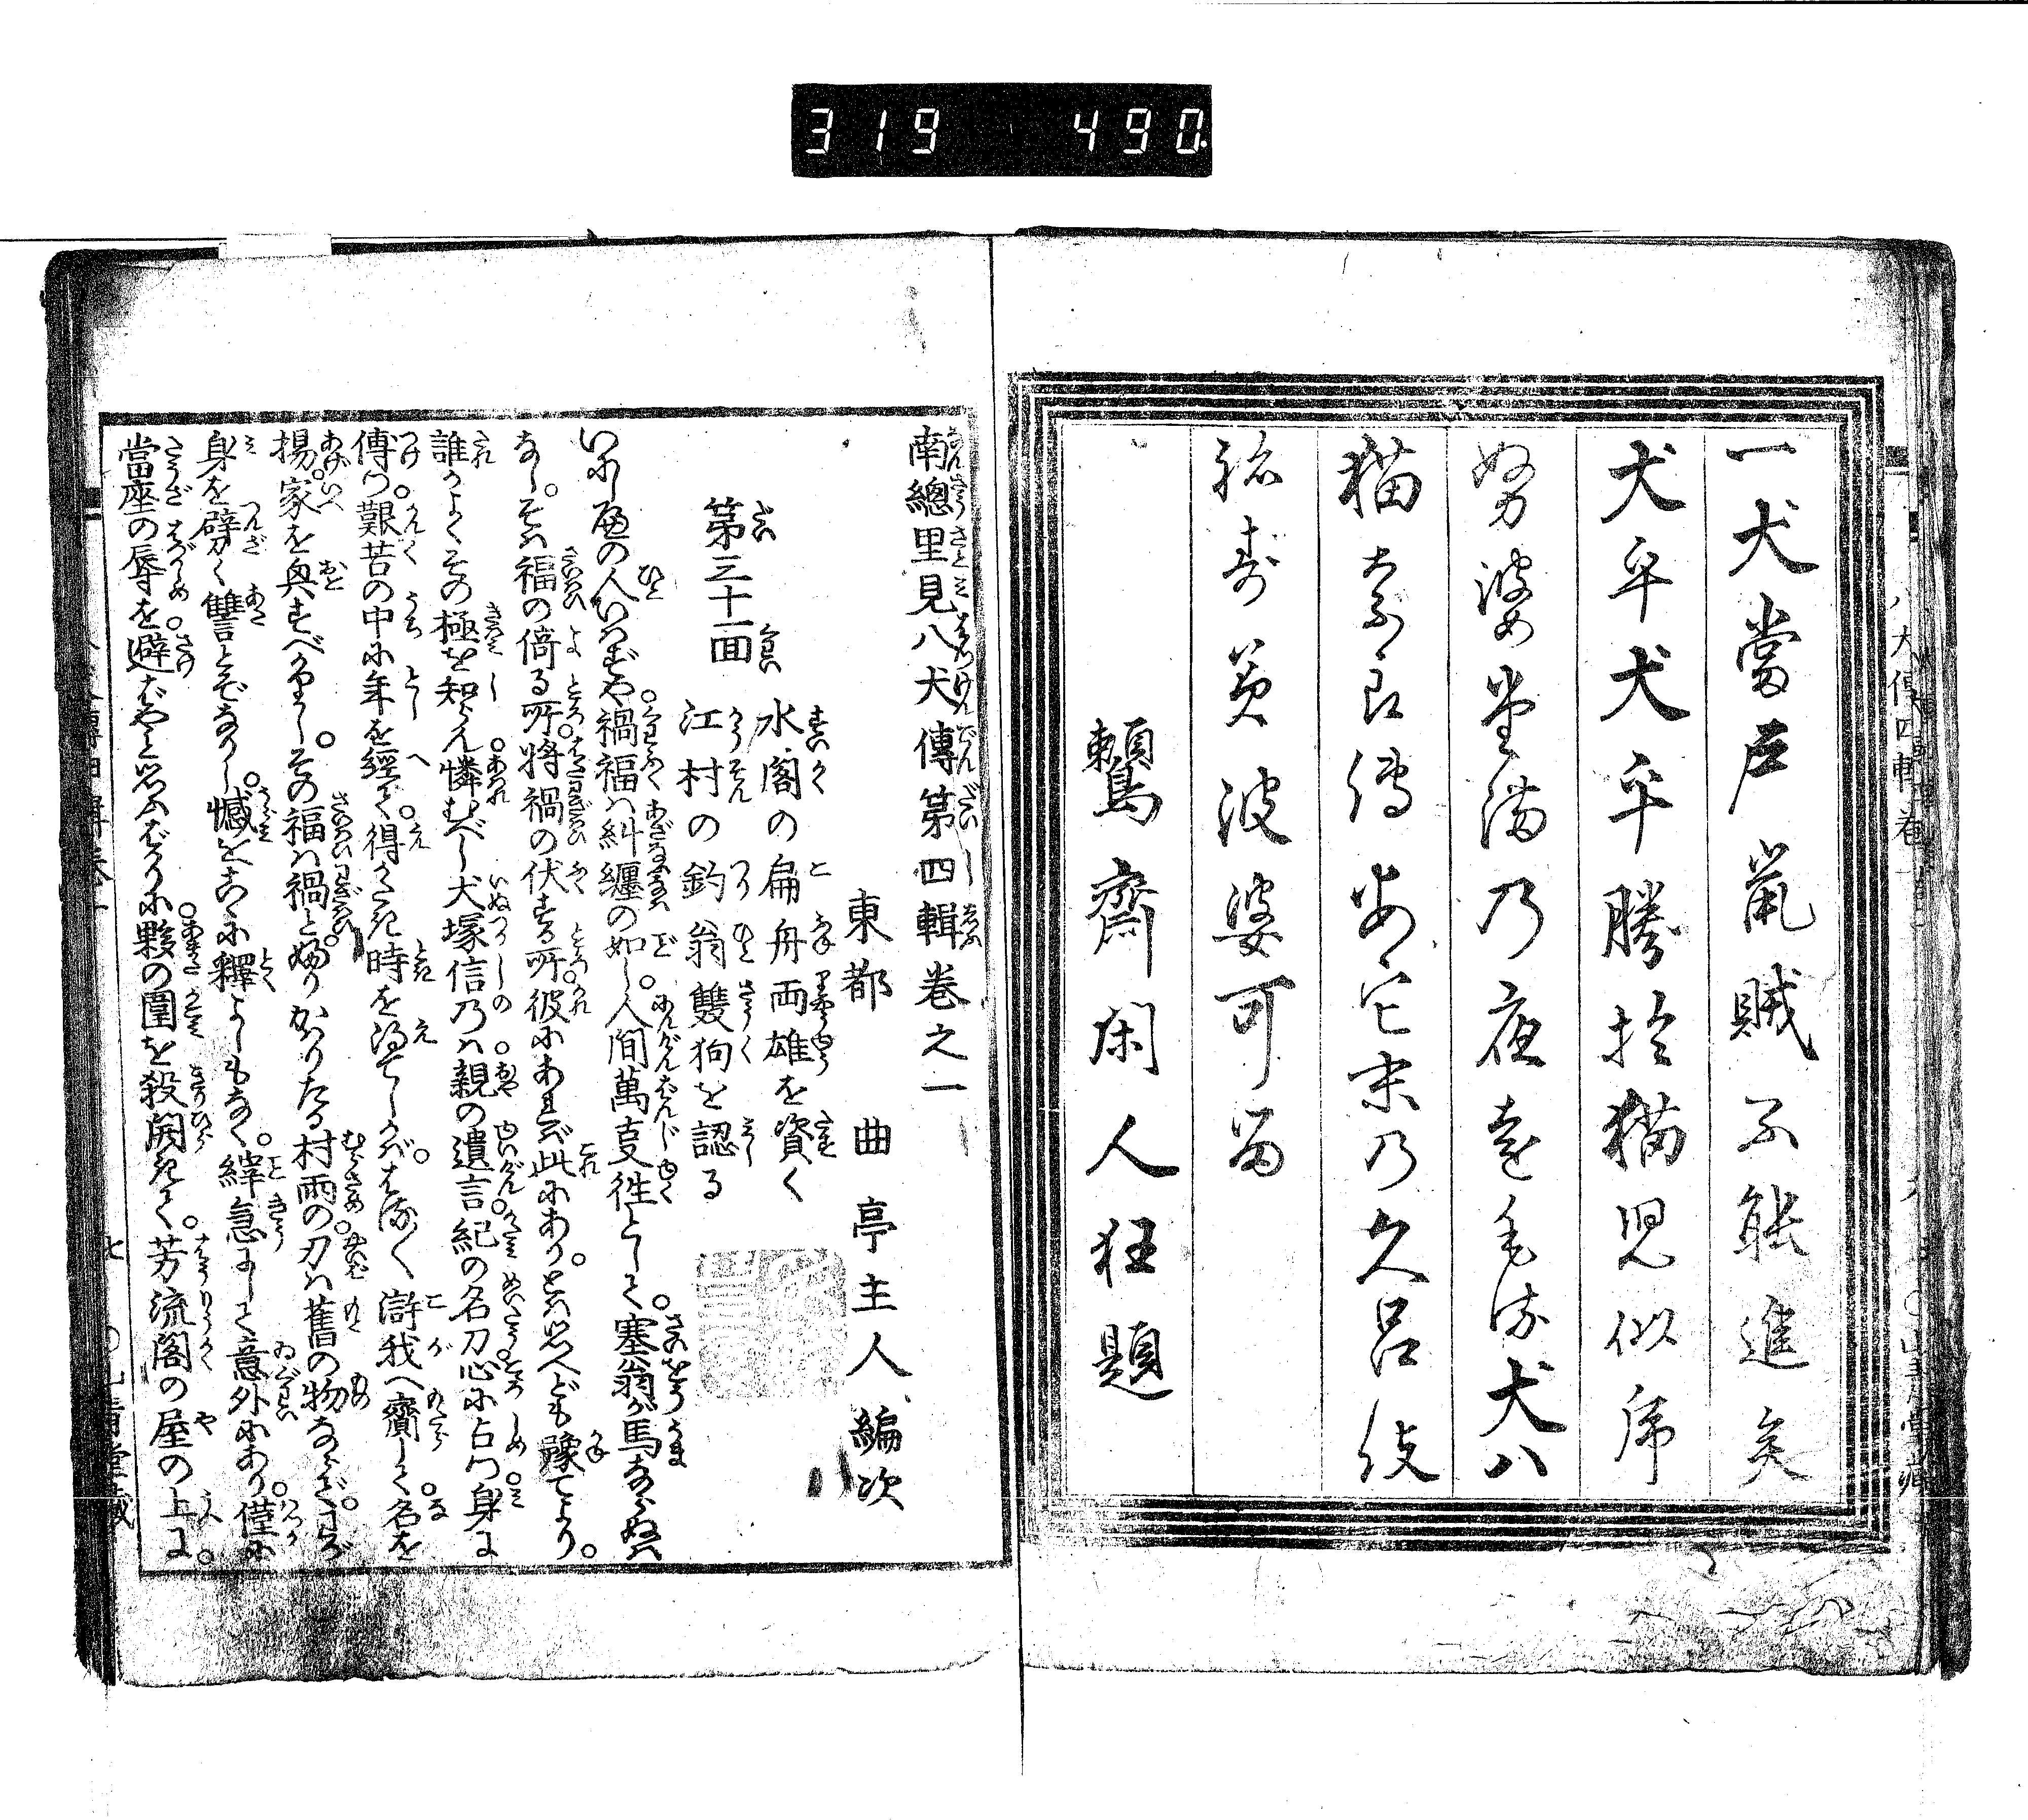 319 490
一犬當戸鼠賊不能進矣
犬乎犬乎勝於猫児似虎
努婆必堂満乃夜遠毛流犬八
猫奈良傳安它末乃久呂伎
祢寿美波婆可留
頼鳥齋閑人狂題
南總里見八犬傳第四輯巻之一
東都 曲亭主人編次
第三十一回 水閣の扁舟両雄を資く
江村の釣翁雙狗を認る
いにしへの人いはずや禍福は糾纏の如し。人間萬事徃として。塞翁が馬ならぬは
なし。そは福の倚る所。将禍の伏する所。彼にあれば此にあり。とは思へども豫てより。
誰かよくその極を知らん。憐むべし犬塚信乃は。親の遺言。紀の名刀心に占め身に
傳つ。艱苦の中に年を經て。得がたき時を得てしかば。はる〲滸我へ齎して。名を
揚。家を興すべかりし。その福は禍と。ふりかはりたる村雨の。刃は舊の物ならで。さらば
身を劈く讐とぞなりし。憾をこゝに釋よしもなく。縡急にして意外にあり。僅に
當座の辱を避ばやと思ふばかりに。夥の圍を殺開きて。芳流閣の屋の上に。